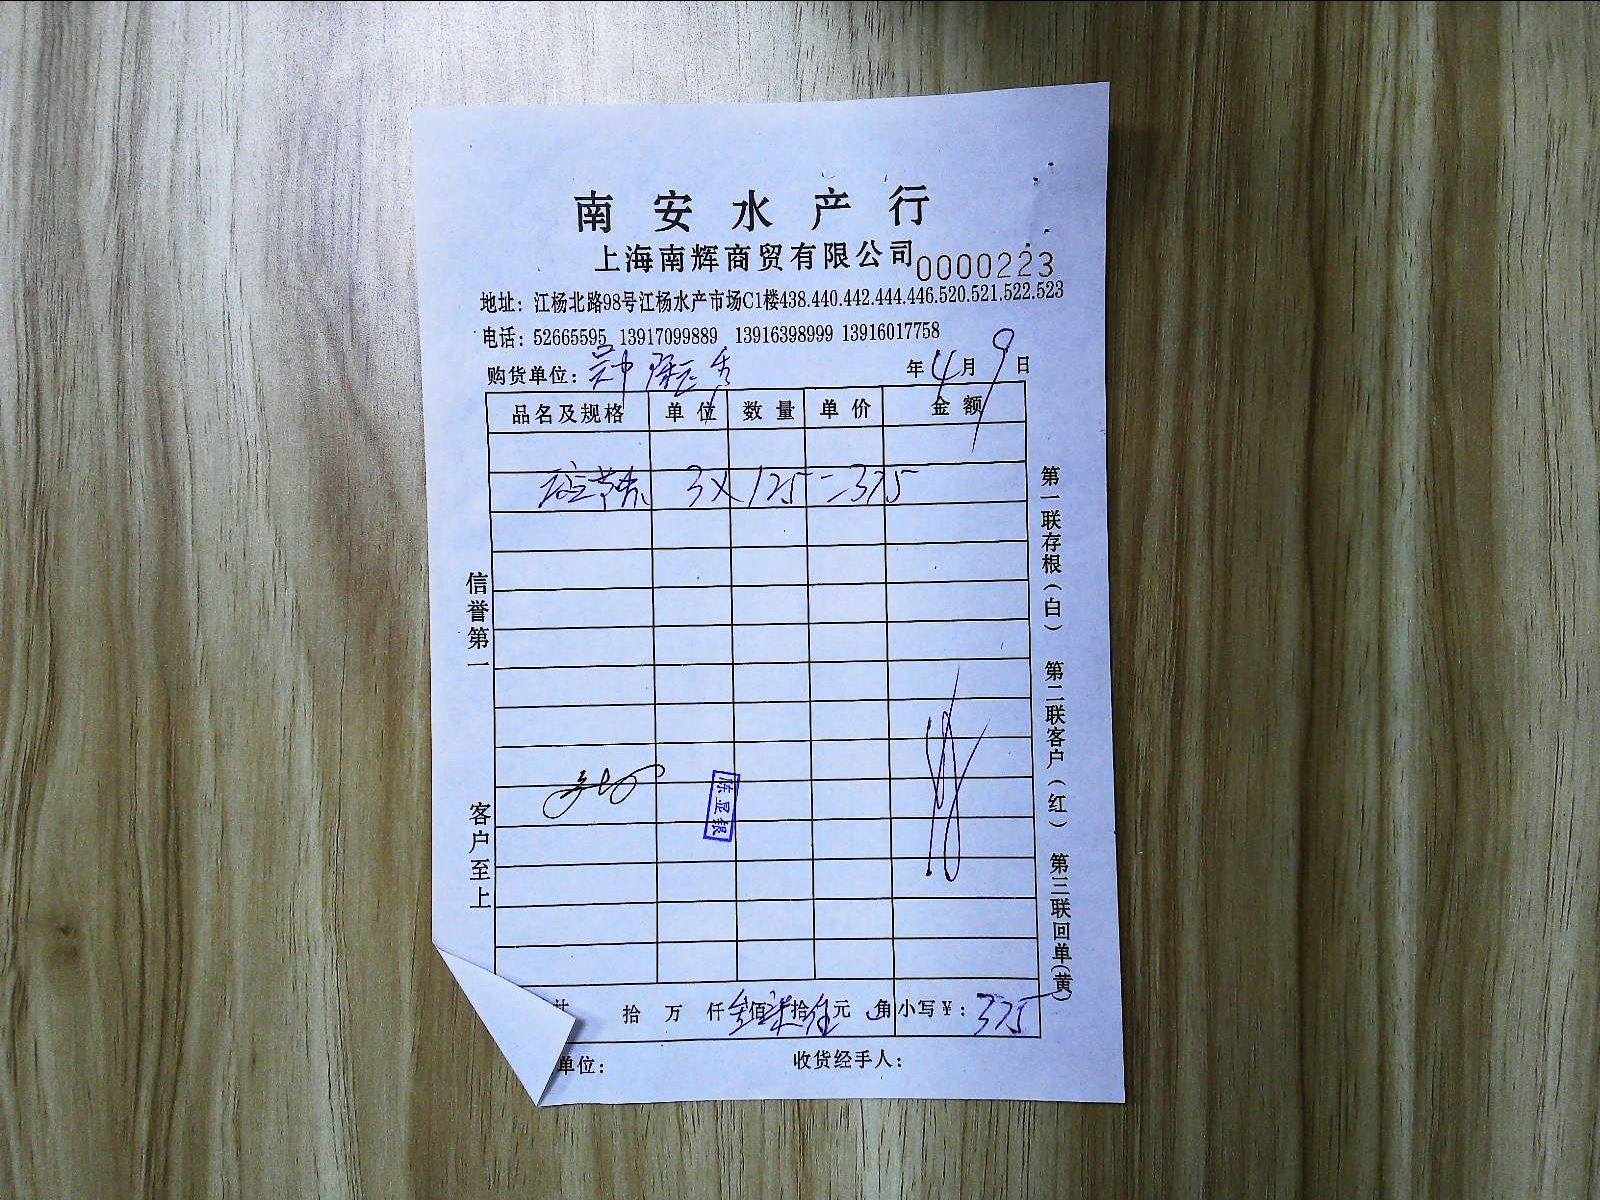 南安水产行
上海南辉商贸有限公司 0000223
地址：江杨北路98号江杨水产市场C1楼438.440.442.444.446.520.521.522.523
电话：52665595 13917099889 13916398999 13916017758
购货单位： 年4月9日
品名及规格 单位 数量 单价 金额
3×125=375
信誉第一
客户至上
第一联存根（白） 第二联客户（红） 第三联回单（黄）
陈显银
计 拾 万 仟叁佰柒拾伍元 角小写￥：375
单位： 收货经手人：